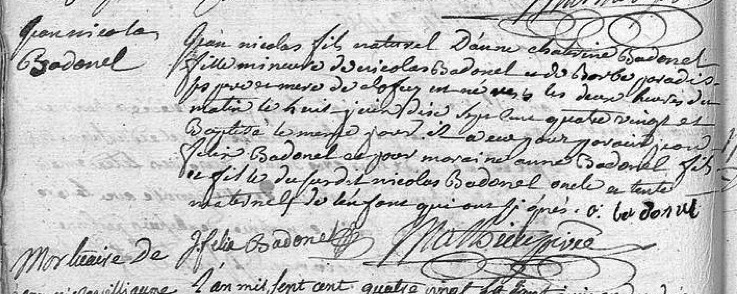 Jean nicolas
Badonel
Jean nicolas fils naturel D'anne chaterine Badonel
fille mineure de nicolas Badonel et de Barbe paradis
ses pere et mere de est né vers les deux heures du
matin le huit juin dix sept cent quatre vingt et
Baptisé le meme jour. il a eu pour parain jean
felix Badonel et pour maraine anne Badonel fils
et fille dudit nicolas Badonel oncle et tente
maternels de l'enfant qui ont signés. a. badonel
J felix Badonel Mathieu
Mortuaire de
L'an mil sept cent quatre vingt